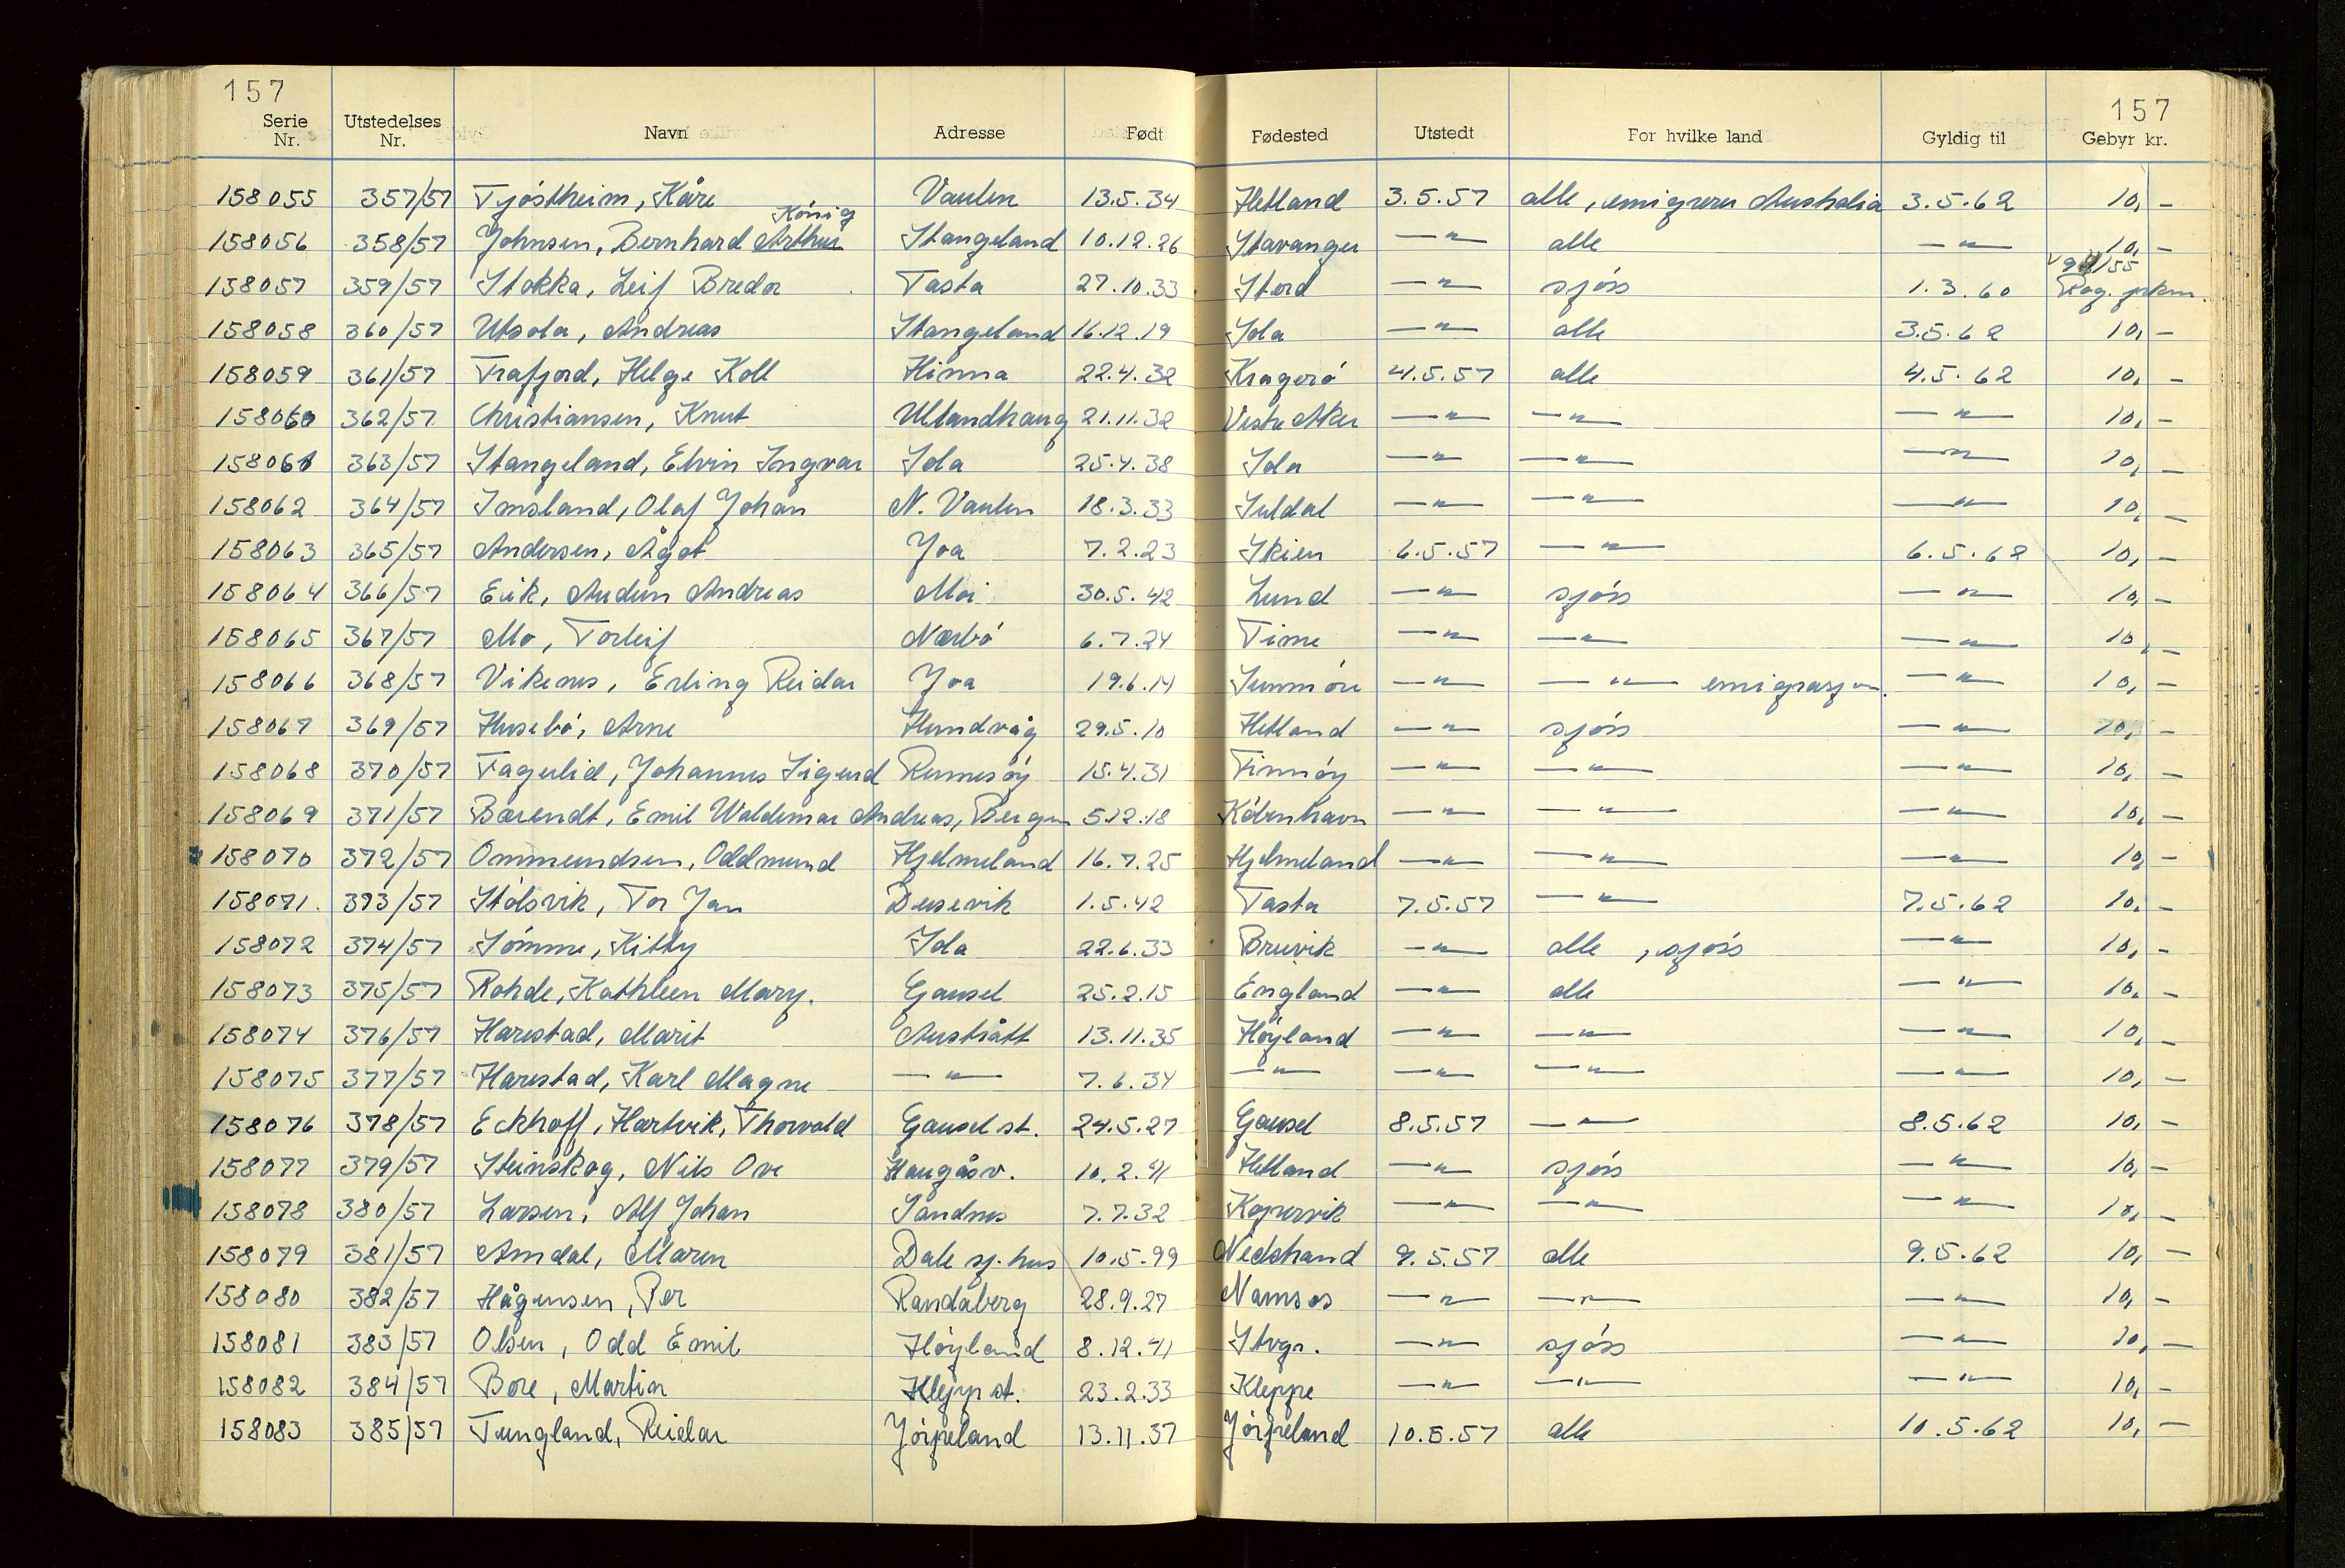 157 157
Serie Nr. Utstedelses Nr. Navn Adresse Født Fødested Utstedt For hvilke land Gyldig til Gebyr kr.
158055 357/57 Tjøstheim, Kåre Vaulen 13.5.34 Hetland 3.5.57 alle, emigrerer Australia 3.5.62 10,-
König
158056 358/57 Johnsen, Bernhard Arthur Stangeland 10.12.26 Stavanger —"— alle —"— 10,-
158057 359/57 Stokka, Leif Breder Tasta 27.10.33 Stord —"— sjøis 1.3.60
158058 360/57 Utsola, Andreas Stangeland 16.12.19 Sola —"— alle 3.5.62 10,-
158059 361/57 Trafjord, Helge Koll Hinna 22.4.32 Kragerø 4.5.57 alle 4.5.62 10,-
158060 362/57 Christiansen, Knut Ullandhaug 21.11.32 Vestre Aker —"— —"— —"— 10,-
158061 363/57 Stangeland, Elvin Ingvar Sola 25.4.38 Sola —"— —"— —"— 10,-
158062 364/57 Imsland, Olaf Johan N. Vaulen 18.3.33 Suldal —"— —"— —"— 10,-
158063 365/57 Andersen, Ågot Yoa 7.2.23 Skien 6.5.57 —"— 6.5.62 10,-
158064 366/57 Eik, Audun Andreas Moi 30.5.42 Lund —"— sjøis —"— 10,-
158065 367/57 Mo, Torleif Nærbø 6.7.24 Time —"— —"— —"— 10,-
158066 368/57 Vikenes, Erling Reidar Yoa 19.6.14 Sunmøre —"— —"— emigrasjon. —"— 10,-
158067 369/57 Husebø, Arne Hundvåg 29.5.10 Hetland —"— sjøis —"— 10,-
158068 370/57 Fagerlid, Johannes Sigurd Rennesøy 15.4.31 Finnøy —"— —"— —"— 10,-
158069 371/57 Barendt, Emil Waldemar Andreas, Bergen 5.12.18 København —"— —"— —"— 10,-
158070 372/57 Ommundsen, Oddmund Hjelmeland 16.7.25 Hjelmeland —"— —"— —"— 10,-
158071. 373/57 Stølsvik, Tor Jan Dusevik 1.5.42 Tasta 7.5.57 —"— 7.5.62 10,-
158072 374/57 Sømme, Kitty Sola 22.6.33 Bruvik —"— alle, sjøis —"— 10,-
158073 375/57 Rohde, Kathleen Mary. Gausel 25.2.15 England —"— alle —"— 10,-
158074 376/57 Harestad, Marit Austrått 13.11.35 Høyland —"— —"— —"— 10,-
158075 377/57 Harestad, Karl Magne —"— 7.6.34 —"— —"— —"— —"— 10,-
158076 378/57 Eckhoff, Hartvik, Thorvald Gausel st. 24.5.27 Gausel 8.5.57 —"— 8.5.62 10,-
158077 379/57 Steinskog, Nils Ove Haugåsv. 10.2.41 Hetland —"— sjøis —"— 10,-
158078 380/57 Larsen, Alf Johan Sandnes 7.7.32 Kopervik —"— —"— —"— 10,-
158079 381/57 Amdal, Maren Dale sj.hus 10.5.99 Nedstrand 9.5.57 alle 9.5.62 10,-
158080 382/57 Hågensen, Per Randaberg 28.9.27 Namsos —"— —"— —"— 10,-
158081 383/57 Olsen, Odd Emil Høyland 8.12.41 Stvgr. —"— sjøis —"— 10,-
158082 384/57 Bore, Martin Klepp st. 23.2.33 Kleppe —"— —"— —"— 10,-
158083 385/57 Tungland, Reidar Jørpeland 13.11.37 Jørpeland 10.5.57 alle 10.5.62 10,-